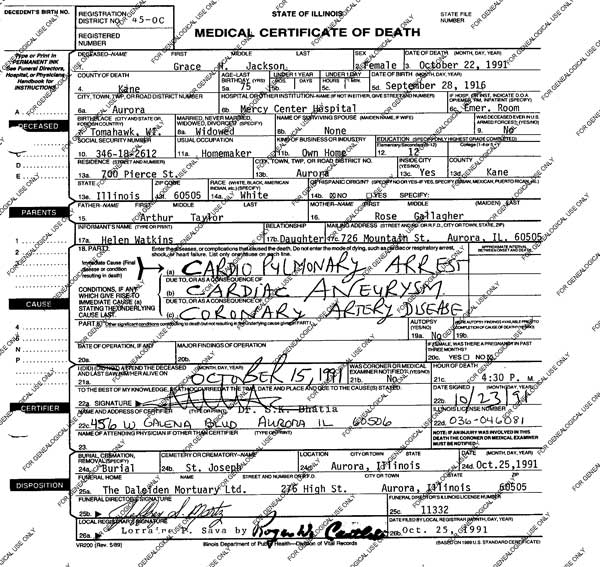 DECEDENT'S BIRTH NO.
REGISTRATION DISTRICT NO. 45-OC
STATE OF ILLINOIS
STATE FILE NUMBER
REGISTERED NUMBER
MEDICAL CERTIFICATE OF DEATH
Type or Print in PERMANENT INK
See Funeral Directors, Hospital, or Physicians Handbook for INSTRUCTIONS
DECEASED–NAME FIRST MIDDLE LAST SEX DATE OF DEATH (MONTH, DAY, YEAR)
1. Grace H. Jackson 2. Female 3. October 22, 1991
COUNTY OF DEATH AGE–LAST BIRTHDAY (YRS) UNDER 1 YEAR UNDER 1 DAY DATE OF BIRTH (MONTH, DAY, YEAR)
4. Kane 5a. 75 5b. 5c. 5d. September 28, 1916
CITY, TOWN, TWP, OR ROAD DISTRICT NUMBER HOSPITAL OR OTHER INSTITUTION–NAME (IF NOT IN EITHER, GIVE STREET AND NUMBER)
6a. Aurora 6b. Mercy Center Hospital 6c. Emer. Room
DECEASED
BIRTHPLACE (CITY AND STATE OR FOREIGN COUNTRY) MARRIED, NEVER MARRIED, WIDOWED, DIVORCED (SPECIFY) NAME OF SURVIVING SPOUSE (MAIDEN NAME, IF WIFE) WAS DECEASED EVER IN U.S. ARMED FORCES? (YES/NO)
7. Tomahawk, WI. 8a. Widowed 8b. None 9. No
SOCIAL SECURITY NUMBER USUAL OCCUPATION KIND OF BUSINESS OR INDUSTRY EDUCATION (SPECIFY ONLY HIGHEST GRADE COMPLETED)
10. 346-18-2612 11a. Homemaker 11b. Own Home 12. 12
RESIDENCE (STREET AND NUMBER) CITY, TOWN, TWP, OR ROAD DISTRICT NO. INSIDE CITY (YES/NO) COUNTY
13a. 700 Pierce St. 13b. Aurora 13c. Yes 13d. Kane
STATE ZIP CODE RACE (WHITE, BLACK, AMERICAN INDIAN, etc.) (SPECIFY) OF HISPANIC ORIGIN?
13e. Illinois 13f. 60505 14a. White 14b. NO YES SPECIFY:
PARENTS
FATHER–NAME FIRST MIDDLE LAST MOTHER–NAME FIRST MIDDLE (MAIDEN) LAST
15. Arthur Taylor 16. Rose Gallagher
INFORMANT'S NAME (TYPE OR PRINT) RELATIONSHIP MAILING ADDRESS (STREET AND NO. OR R.F.D., CITY OR TOWN, STATE, ZIP)
17a. Helen Watkins 17b. Daughter 17c. 726 Mountain St. Aurora, IL. 60505
18. PART I. Enter the diseases, or complications that caused the death. Do not enter the mode of dying, such as cardiac or respiratory arrest, shock, or heart failure. List only one cause on each line. APPROXIMATE INTERVAL BETWEEN ONSET AND DEATH
Immediate Cause (Final disease or condition resulting in death)
(a) CARDIO PULMONARY ARREST
DUE TO, OR AS A CONSEQUENCE OF
CONDITIONS, IF ANY WHICH GIVE RISE TO IMMEDIATE CAUSE (a) STATING THE UNDERLYING CAUSE LAST.
(b) CARDIAC ANEURYSM
DUE TO, OR AS A CONSEQUENCE OF
(c) CORONARY ARTERY DISEASE
CAUSE
PART II. Other significant conditions contributing to death but not resulting in the underlying cause given in PART I. AUTOPSY (YES/NO)
19a. No 19b.
DATE OF OPERATION, IF ANY MAJOR FINDINGS OF OPERATION IF FEMALE, WAS THERE A PREGNANCY IN PAST THREE MONTHS?
20a. 20b. 20c. YES NO
I (DID) (DID NOT) ATTEND THE DECEASED AND LAST SAW HIM/HER ALIVE ON (MONTH, DAY, YEAR) WAS CORONER OR MEDICAL EXAMINER NOTIFIED? (YES/NO) HOUR OF DEATH
21a. OCTOBER 15, 1991 21b. No 21c. 4:30 P. M
TO THE BEST OF MY KNOWLEDGE, DEATH OCCURRED AT THE TIME, DATE AND PLACE AND DUE TO THE CAUSE(S) STATED. DATE SIGNED (MONTH, DAY, YEAR)
22a. SIGNATURE 22b. 10/23/91
CERTIFIER
NAME AND ADDRESS OF CERTIFIER (TYPE OR PRINT) Dr. S.K. Bhatia ILLINOIS LICENSE NUMBER
22c. 456 W GALENA BLVD AURORA IL 60506 22d. 036-046081
NAME OF ATTENDING PHYSICIAN IF OTHER THAN CERTIFIER (TYPE OR PRINT) NOTE: IF AN INJURY WAS INVOLVED IN THIS DEATH THE CORONER OR MEDICAL EXAMINER MUST BE NOTIFIED.
23.
BURIAL, CREMATION, REMOVAL (SPECIFY) CEMETERY OR CREMATORY–NAME LOCATION CITY OR TOWN STATE DATE (MONTH, DAY, YEAR)
24a. Burial 24b. St. Joseph 24c. Aurora, Illinois 24d. Oct.25,1991
DISPOSITION
FUNERAL HOME NAME STREET AND NUMBER OR R.F.D. CITY OR TOWN STATE ZIP
25a. The Daleiden Mortuary Ltd. 276 High St. Aurora, Illinois 60505
FUNERAL DIRECTOR'S SIGNATURE FUNERAL DIRECTOR'S ILLINOIS LICENSE NUMBER
25b. 25c. 11332
LOCAL REGISTRAR'S SIGNATURE DATE FILED BY LOCAL REGISTRAR (MONTH, DAY, YEAR)
26a. Lorraine P. Sava by 26b. Oct. 25, 1991
VR200 (Rev. 5/89) Illinois Department of Public Health—Division of Vital Records (BASED ON 1989 U.S. STANDARD CERTIFICATE)
FOR GENEALOGICAL USE ONLY